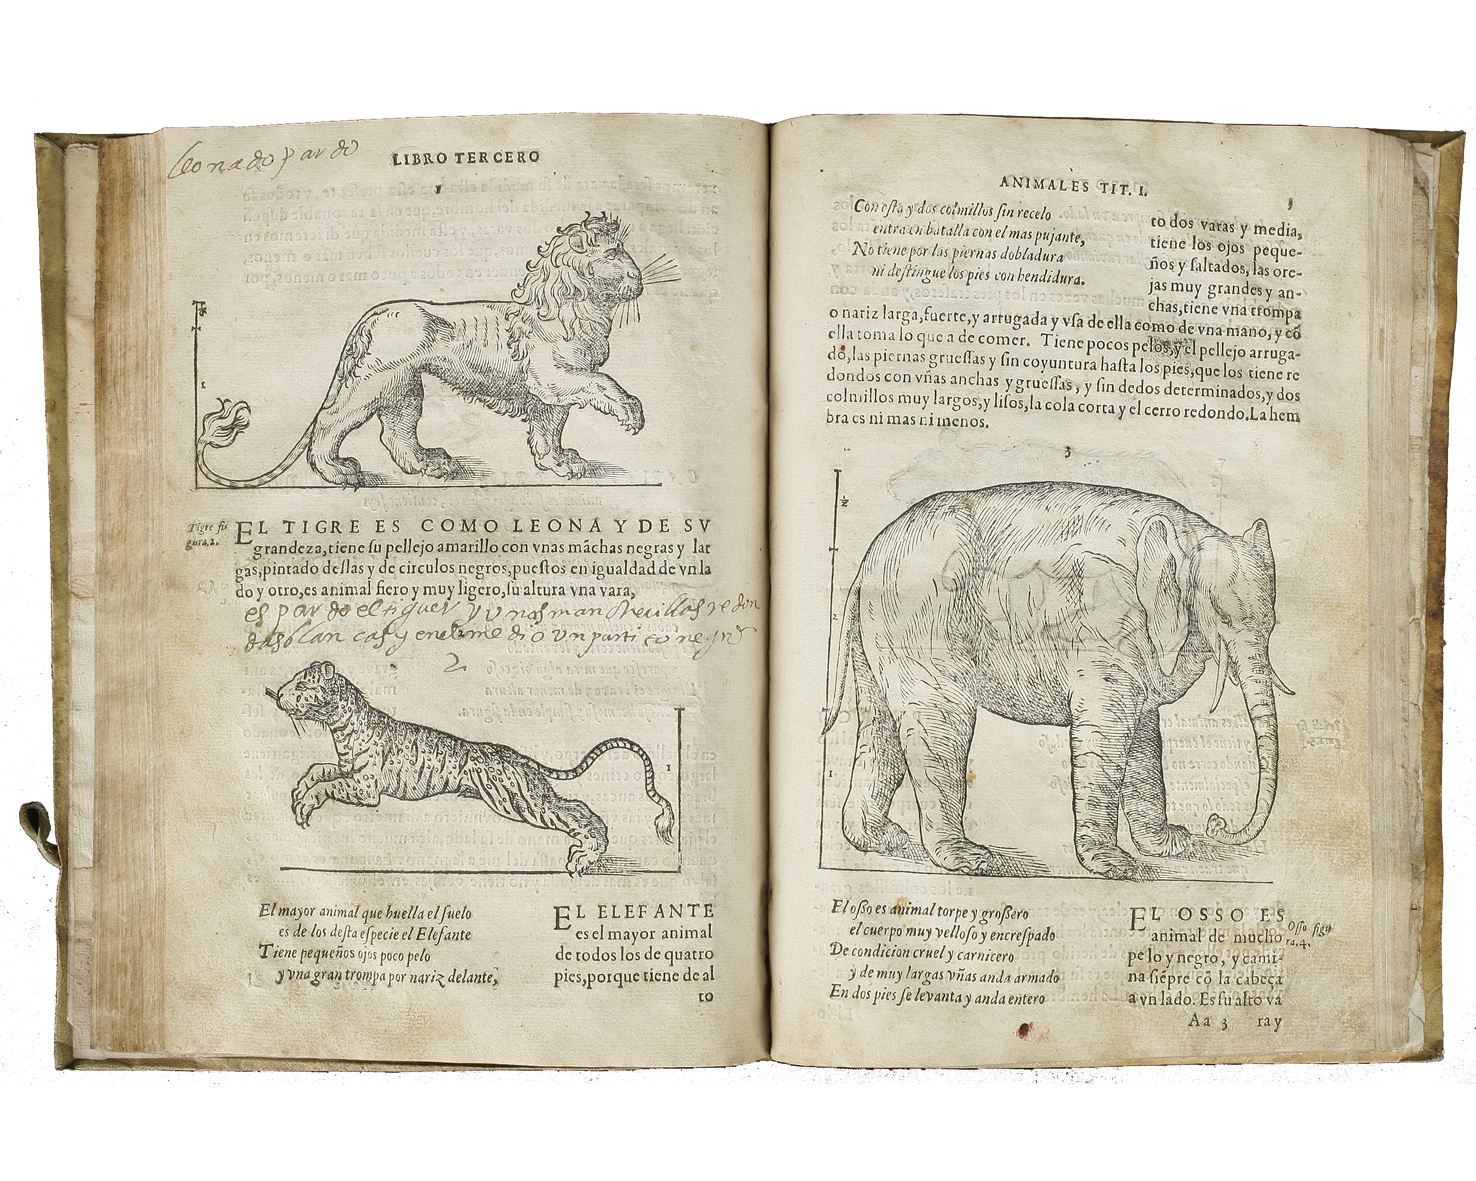 leonado pardo
LIBRO TERCERO
1
Tigre fi-
gura. 2.
EL TIGRE ES COMO LEONA Y DE SV
grandeza, tiene ſu pellejo amarillo con vnas mãchas negras y lar
gas, pintado deſlas y de circulos negros, pueſtos en igualdad de vn la
do y otro, es animal fiero y muy ligero, ſu altura vna vara,
es pardo el tiguer y unas manchecillas redon
das blancas y en el medio un
2
1
El mayor animal que huella el ſuelo
es de los deſta eſpecie el Elefante
Tiene pequeños ojos poco pelo
y vna gran trompa por nariz delante,
EL ELEFANTE
es el mayor animal
de todos los de quatro
pies, porque tiene de al
to
ANIMALES TIT. I.
3
Con eſta y dos colmillos ſin recelo
entra en batalla con el mas pujante,
No tiene por las piernas dobladura
ni deſtingue los pies con hendidura.
to dos varas y media,
tiene los ojos peque-
ños y ſaltados, las ore-
jas muy grandes y an-
chas, tiene vna trompa
o nariz larga, fuerte, y arrugada y vſa de ella como de vna mano, y cõ
ella toma lo que a de comer. Tiene pocos pelos, y el pellejo arruga-
do, las piernas grueſſas y ſin coyuntura haſta los pies, que los tiene re
dondos con vñas anchas y grueſſas, y ſin dedos determinados, y dos
colmillos muy largos, y liſos, la cola corta y el cerro redondo. La hem
bra es ni mas ni menos.
3
2
El oſſo es animal torpe y groſſero
el cuerpo muy velloſo y encreſpado
De condicion cruel y carnicero
y de muy largas vñas anda armado
En dos pies ſe levanta y anda entero
EL OSSO ES
animal de mucho
pelo y negro, y cami-
na ſiẽpre cõ la cabeça
a vn lado. Es ſu alto va
Oſſo figu-
ra. 4.
Aa 3 ray